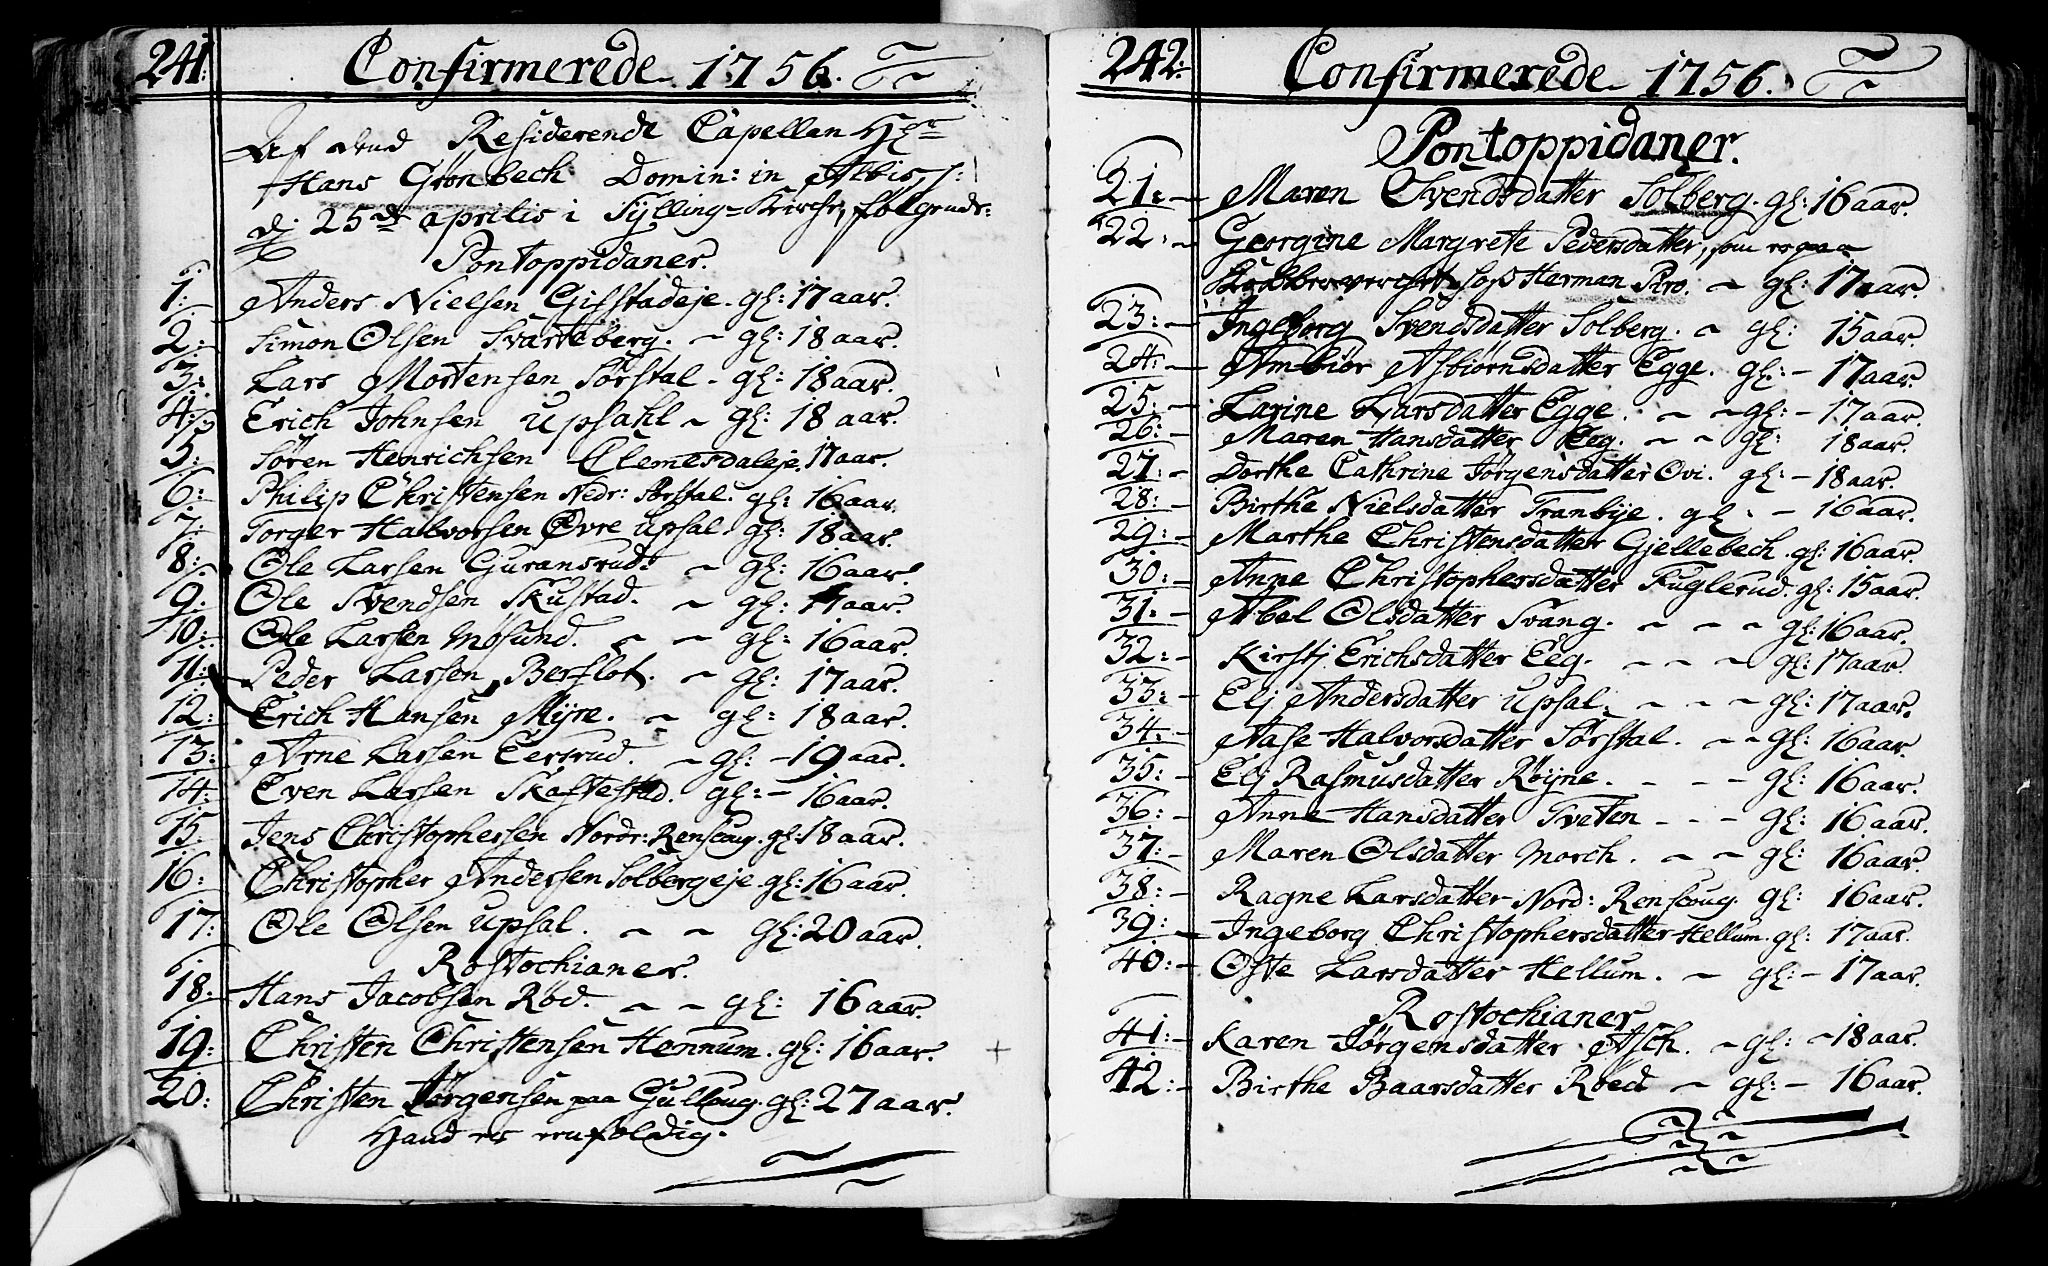 241:
Confirmerede 1756.
Af dend Residerende Capellan Hr
Hans Grønbech Domin: in Albis, s:
dj 25de aprilis i Sylling-Kirche, følgende:
Pontoppidaner.
1: Anders Nielsen Gifstadeje. gl: 17 aar.
2: Simon Olsen Svarteberg. gl: 18 aar.
3: Lars Mortensen Sørstal. gl: 18 aar.
4: Erich Johnsen Upsahl gl: 18 aar.
5: Søren Henrichsen Clemesdaleje, 17 aar.
6: Philip Christensen Nedr: Sørstal. gl: 16 aar.
7: Torger Halvorsen Øvre Upsal. gl: 18 aar.
8: Ole Larsen Guransrud. gl: 16 aar.
9: Ole Svendsen Skustad. gl: 17 aar.
10: Ole Larsen Møsund. gl: 16 aar.
11: Peder Larsen Berflot. gl: 17 aar.
12: Erich Hansen Mijre. gl: 18 aar.
13: Arne Larsen Eersrud. gl: 19 aar.
14: Even Larsen Skastestad. gl: 16 aar.
15. Jens Christophersen Nordr: Renscoug. gl: 18 aar.
16: Christopher Andersen Solbergeje. gl: 16 aar.
17: Ole Olsen Upsal. gl: 20 aar.
Rostochianer.
18: Hans Jacobsen Rød. gl: 16 aar.
19: Christen Christensen Hennum. gl: 16 aar.
20: Christen Jørgensen paa Gulloug. gl: 27 aar.
Hand er eenfoldig.
242:
Confirmerede 1756.
Pontoppidaner.
21: Maren Svendsdatter Solberg. gl: 16 aar.
22: Georgine Margrete Pedersdatter, som er paa
hos Herman Piro. gl: 17 aar.
23: Ingeborg Svendsdatter Solberg. gl: 15 aar.
24: Ambiør Asbiørnsdatter Egge. gl: 17 aar.
25: Karine Larsdatter Egge. gl: 17 aar.
26: Maren Hansdatter Eeg. gl: 18 aar.
27: Dorthe Cathrine Jørgensdatter Ovi. gl: 18 aar.
28: Birthe Nielsdatter Tranbije. gl: 16 aar.
29: Marthe Christensdatter Gjellebech. gl: 16 aar.
30: Anne Christophersdatter Fuglerud. gl: 15 aar.
31: Abel Olsdatter Svang. gl: 16 aar.
32: Kirstj Erichsdatter Eeg. gl: 17 aar.
33: Elj Andersdatter Upsal. gl: 17 aar.
34: Aase Halvorsdatter Sørstal. gl: 16 aar.
35: Elj Rasmusdatter Røijne. gl: 16 aar.
36: Anne Hansdatter Tveten gl: 16 aar.
37: Maren Olsdatter Morch. gl: 16 aar.
38: Ragne Larsdatter Nord: Renscoug. gl: 16 aar.
39: Ingeborg Christophersdatter Hellum. gl: 17 aar.
40: Øste Larsdatter Hellum. gl: 17 aar.
Rostochianer
41: Karen Jørgensdatter Asch. gl: 18 aar.
42: Birthe Baarsdatter Roed gl: 16 aar.